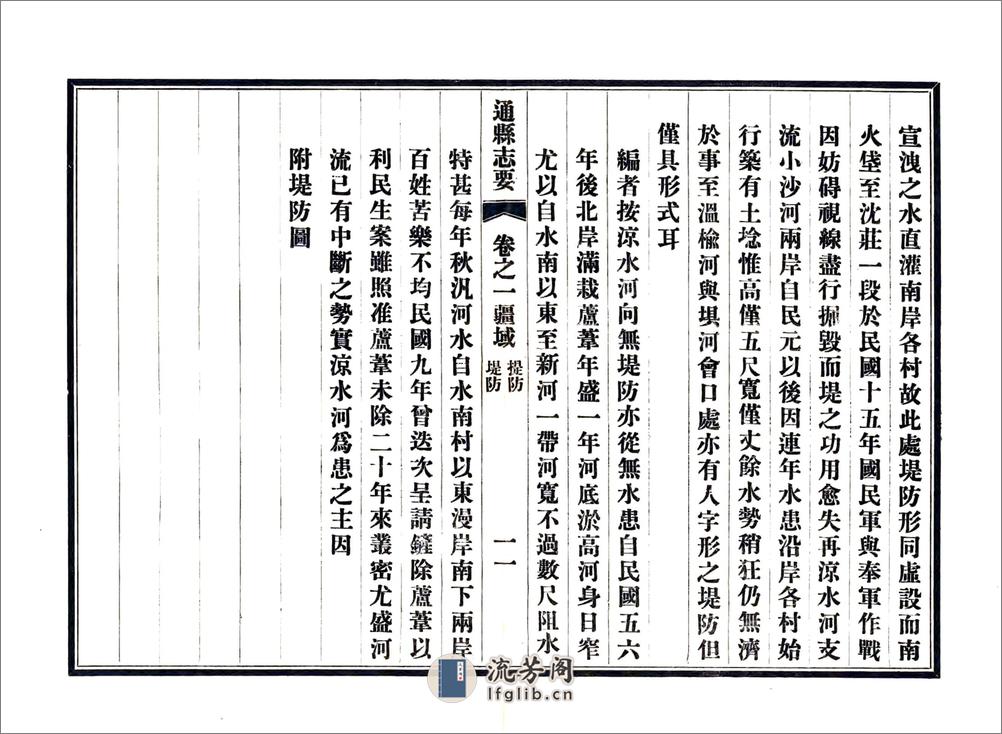 宣洩之水直灌南岸各村故此處堤防形同虛設而南
火垡至沈莊一段於民國十五年國民軍與奉軍作戰
因妨碍視線盡行摧毀而堤之功用愈失再涼水河支
流小沙河兩岸自民元以後因連年水患沿岸各村始
行築有土埝惟高僅五尺寬僅丈餘水勢稍狂仍無濟
於事至溫榆河與垻河會口處亦有人字形之堤防但
僅具形式耳
編者按涼水河向無堤防亦從無水患自民國五六
年後北岸滿栽蘆葦年盛一年河底淤高河身日窄
尤以自水南以東至新河一帶河寬不過數尺阻水
通縣志要
卷之一疆域
提防
堤防
一一
特甚每年秋汛河水自水南村以東漫岸南下兩岸
百姓苦樂不均民國九年曾迭次呈請鏟除蘆葦以
利民生案雖照准蘆葦未除二十年來叢密尤盛河
流已有中斷之勢實涼水河爲患之主因
附堤防圖
流芳阁
lfglib.cn